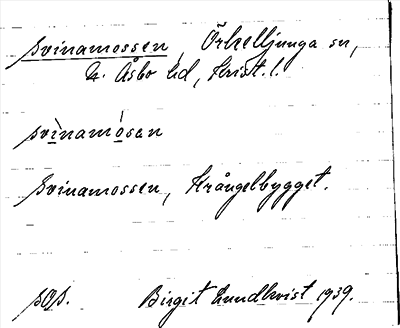 Svinamossen, Örkelljunga sn,
N. Åsbo hd, Krist. l.
svìnamósen
Svinamossen, Krångelbygget.
sOs. Birgit Lundkvist 1939.